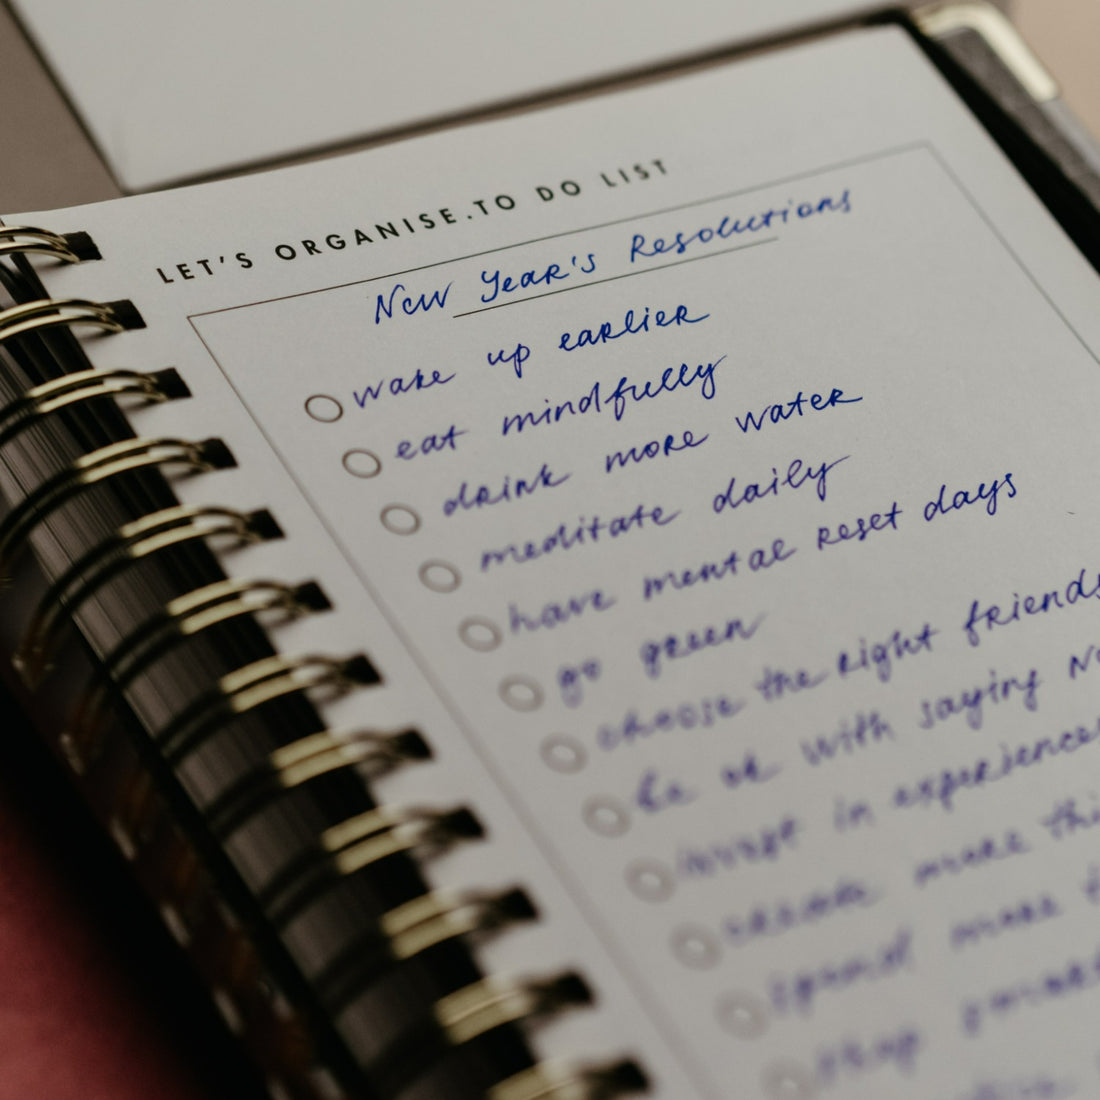 LET'S ORGANISE.TO DO LIST
New Year's Resolutions
wake up earlier
eat mindfully
drink more water
meditate daily
have mental reset days
go green
choose the right friends
be ok with saying No
invest in experiences
create more
spend more
stop